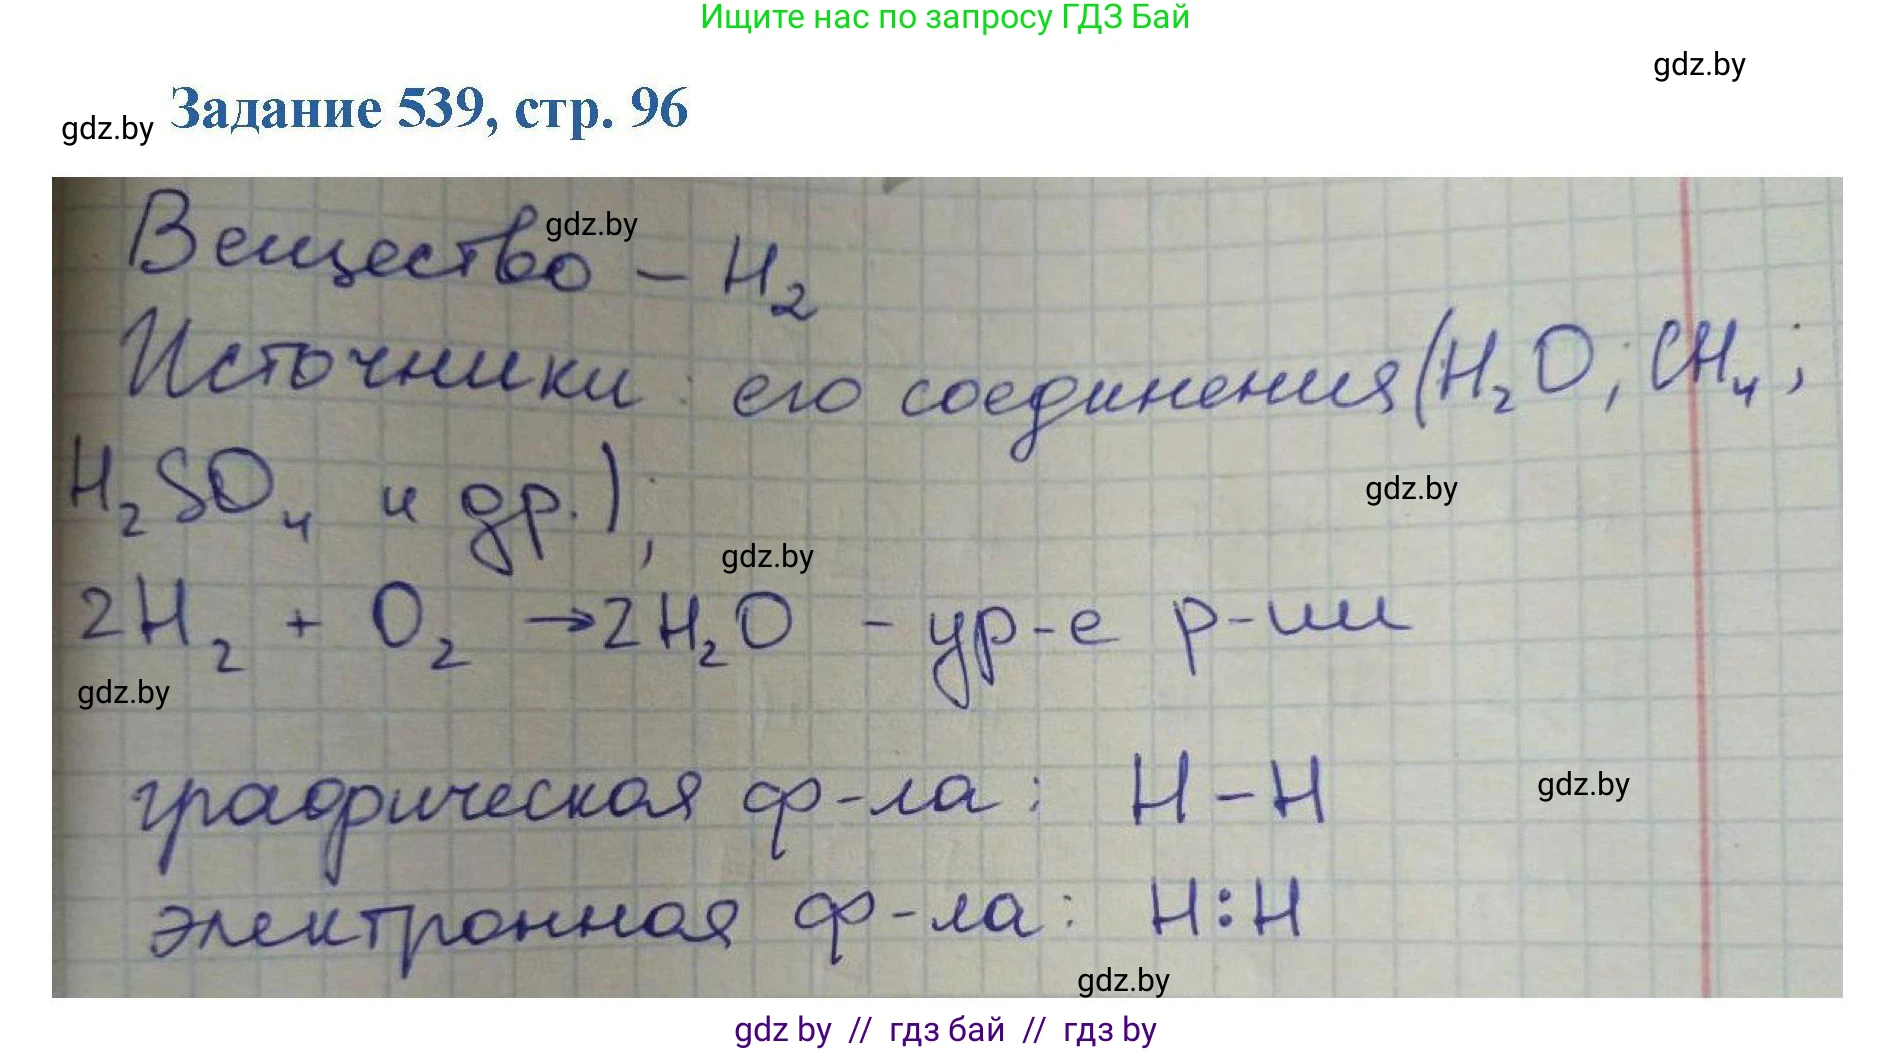 Ищите нас по запросу ГДЗ Бай
gdz.by
Задание 539, стр. 96
gdz.by
Вещество – H₂
gdz.by
Источники: его соединения (H₂O; CH₄;
H₂SO₄ и др.);
gdz.by
gdz.by
2H₂ + O₂ → 2H₂O – ур-е р-ции
gdz.by
графическая ф-ла: H–H
gdz.by
электронная ф-ла: H:H
gdz.by
gdz by // гдз бай // гдз by